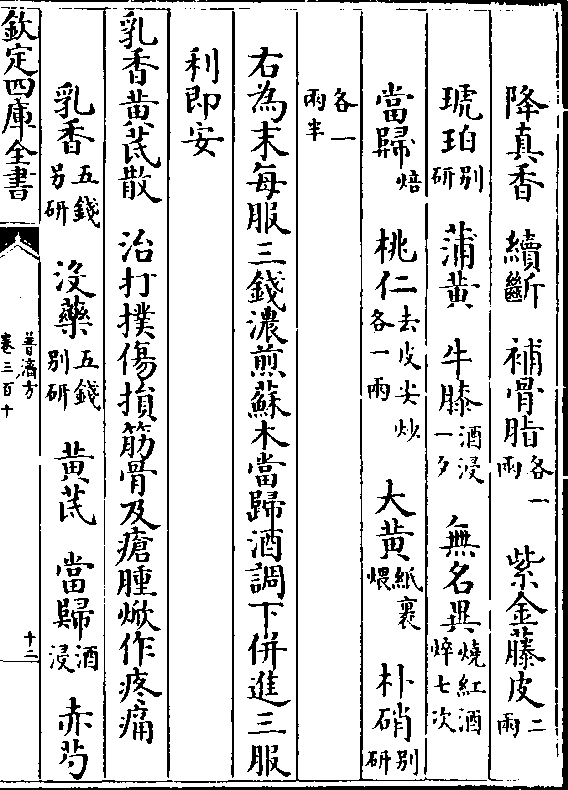 降真香　續斷　補骨脂各一兩　紫金藤皮二兩
琥珀别研　蒲黄　牛膝酒浸一夕　無名異燒紅酒淬七次
當歸焙　桃仁去皮尖炒各一兩　大黄紙裹煨　朴硝别研
各一兩半
右為末每服三錢濃煎蘇木當歸酒調下併進三服
利即安
乳香黄芪散　治打撲傷損筋骨及瘡腫焮作疼痛
乳香五錢另研　没藥五錢别研　黄芪　當歸酒浸　赤芍
欽定四庫全書
普濟方
卷三百十
十二